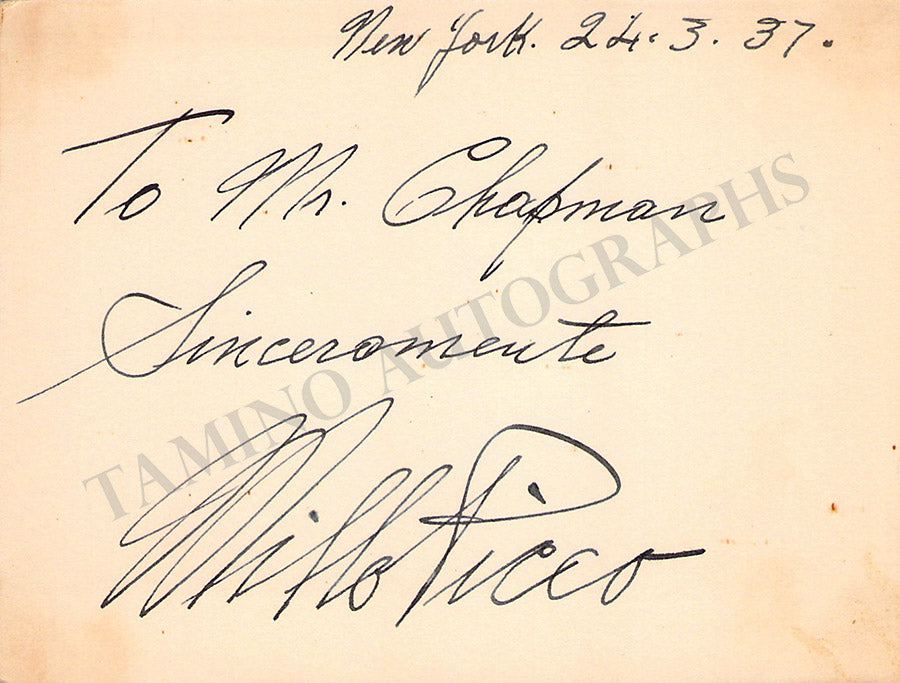 New York. 24.3.37.
To Mr. Chapman
Sinceramente
Millo Picco
TAMINO AUTOGRAPHS